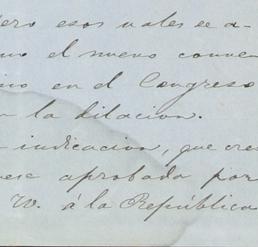 ero esos vales se a-
no el nuevo conve
no en el Congreso
la dilacion.
indicacion, que cre
ese aprobada por
W. á la República